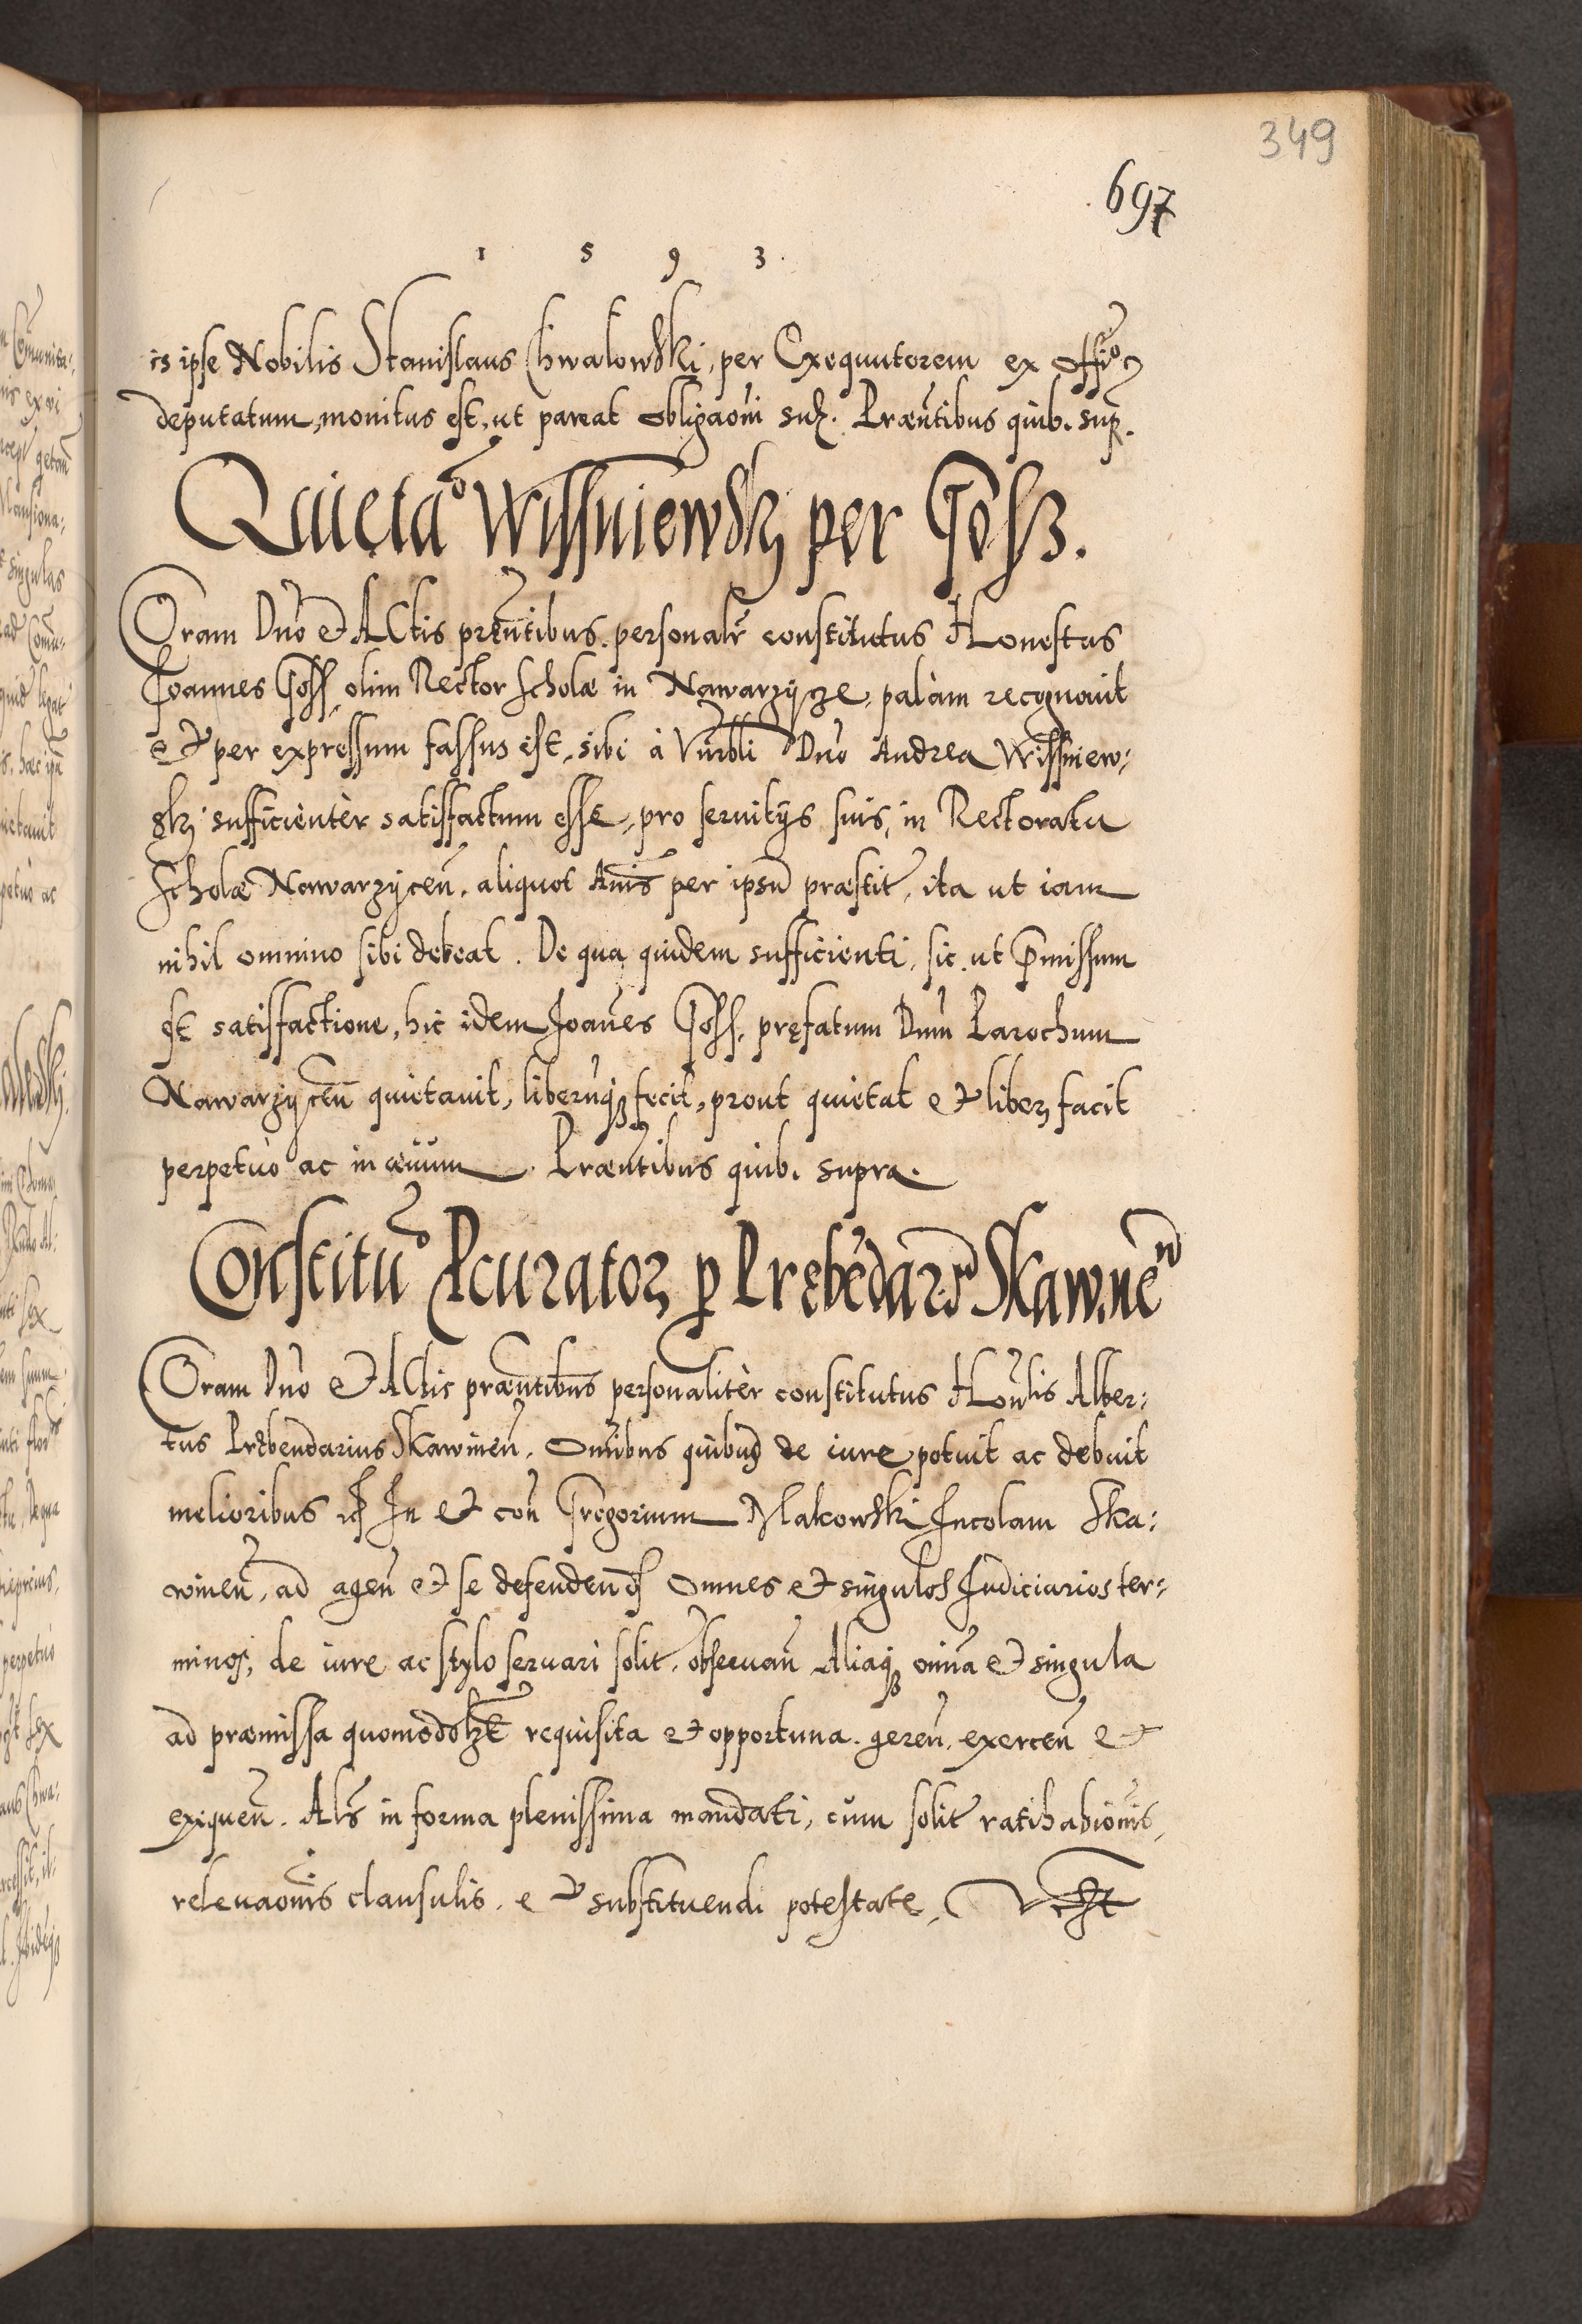 349
697
1 5 9 3.
is ipse Nobilis Stanislaus Chwalowski, per Exequutorem ex offo
deputatum, monitus est, ut pareat obligaoni suę. Præntibus quib. supr.
Quietaō Wissniewskj per Goss.
Coram Dno et Actis prentibus personalr constitutus Honestus
Joannes Goss, olim Rector Scholæ in Nawarzycze, palàm recognouit
et per expressum fassus est, sibi à Vnrbli Dno Andrea Wissniew:
skj sufficientèr satisffactum esse, pro seruitijs suis, in Rectoratu
Scholæ Nawarzycen. aliquot Anis per ipsu præstit, ita ut iam
nihil omnino sibi debeat. De qua quidem sufficienti, sic ut pmissum
est satisffactione, hic idem Joanes Goss, pręfatum Dnum Parochum
Nawarzycen quietauit, liberuqȝ fecit, prout quietat et liberȝ facit
perpetuò ac in æuum. Præntibus quib. supra.
Constituō Pcurator p Prębedariu Skawinen
Coram Dno et Actis præntibus personalitèr constitutus Honlis Alber:
tus Prębendarius Skawinen. Omibus quibus de iure potuit ac debuit
melioribus In et con Gregorium Makowski Incolam Ska:
winen, ad agen et se defenden omnes et singulos Judiciarios ter:
minos, de iure ac stylo seruari solit, obseruan Aliaqȝ omia et singula
ad præmissa quomodolȝt requisita et opportuna. geren, exercen et
exequen. Als in forma plenissima mandati, cum solit ratihabionis,
releuaonis clausulis, et substituendi potestate,